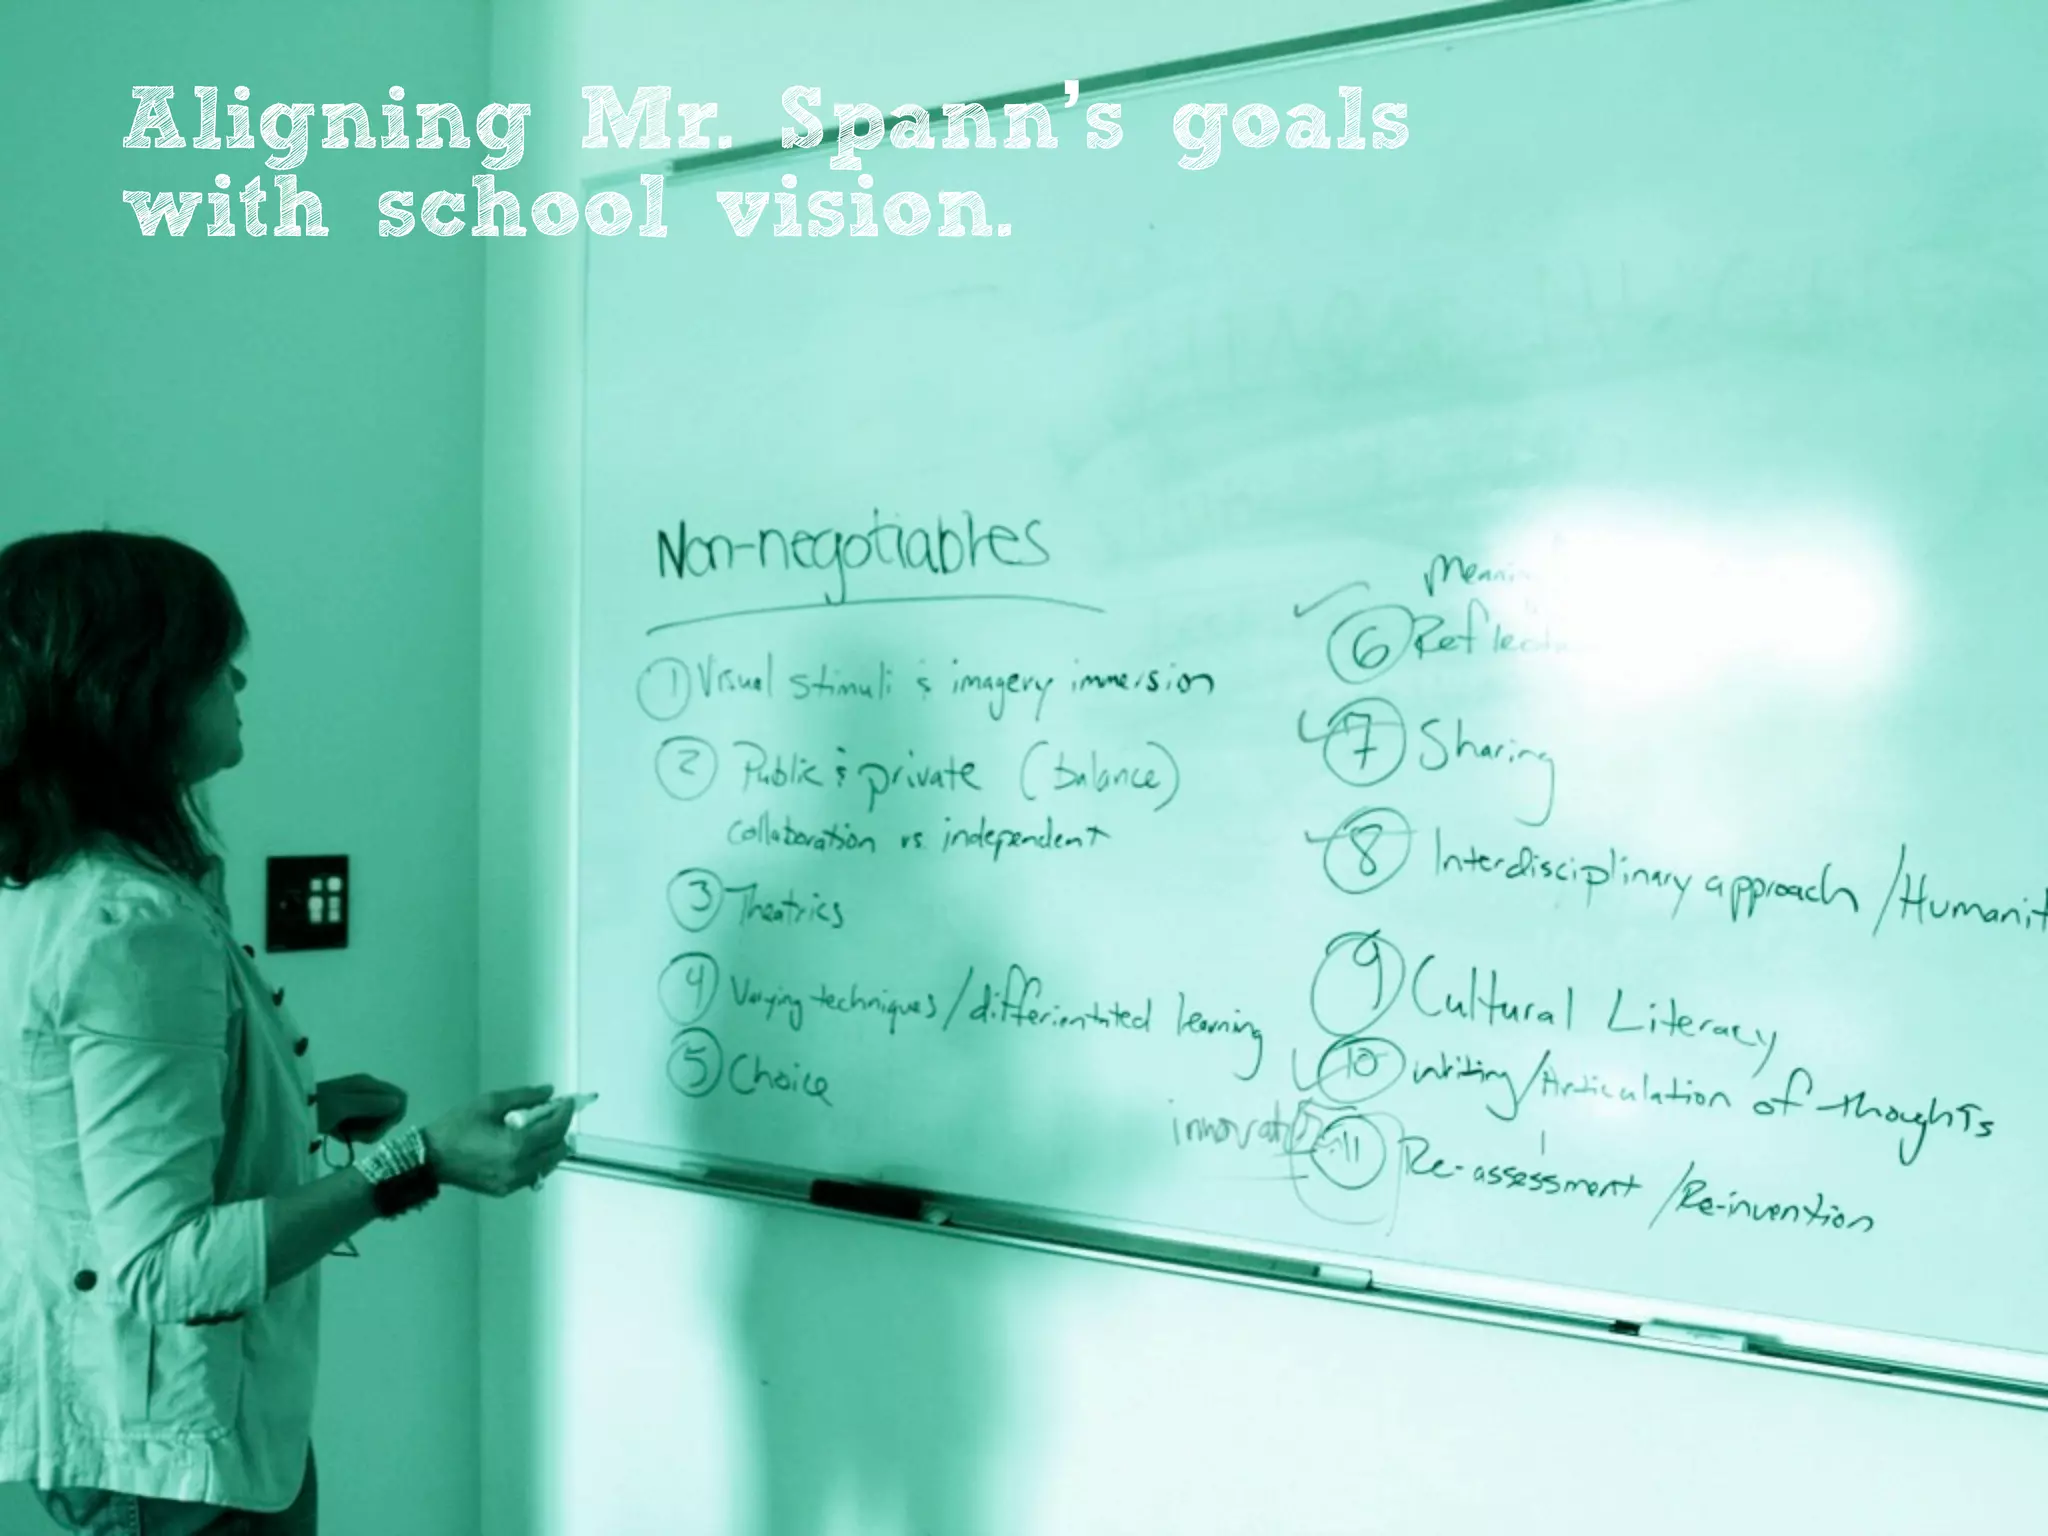 Aligning Mr. Spann's goals
with school vision.
Non-negotiables
① Visual stimuli & imagery immersion
② Public & private (balance)
collaboration vs. independent
③ Theatrics
④ Varying techniques/differientated learning
⑤ Choice
✓ ⑥
✓ ⑦ Sharing
✓ ⑧ Interdisciplinary approach /
⑨ Cultural Literacy
✓ ⑩ Writing/Articulation of thoughts
⑪ Re-assessment /Re-invention